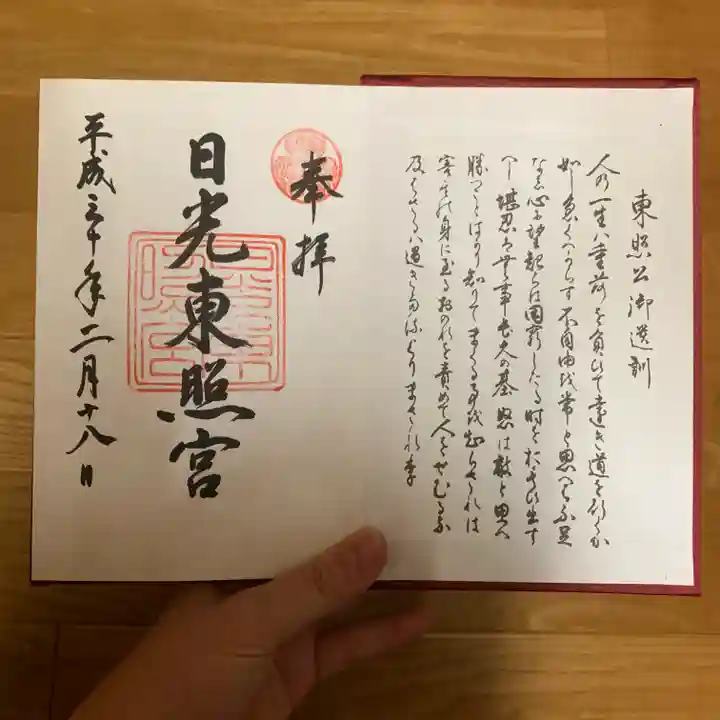 東照公御遺訓
人の一生ハ重荷を負ひて遠き道を行くか
如し急くへからす不自由を常と思へは不足
なし心に望起らは困窮したる時をおもひ出す
へし堪忍は無事長久の基怒は敵と思へ
勝つことはかり知りてまくる事を知らされは
害其の身に至るおのれを責めて人をせむるな
及はさるは過きたるよりまされり
奉拝
日光東照宮
平成三十年二月十八日